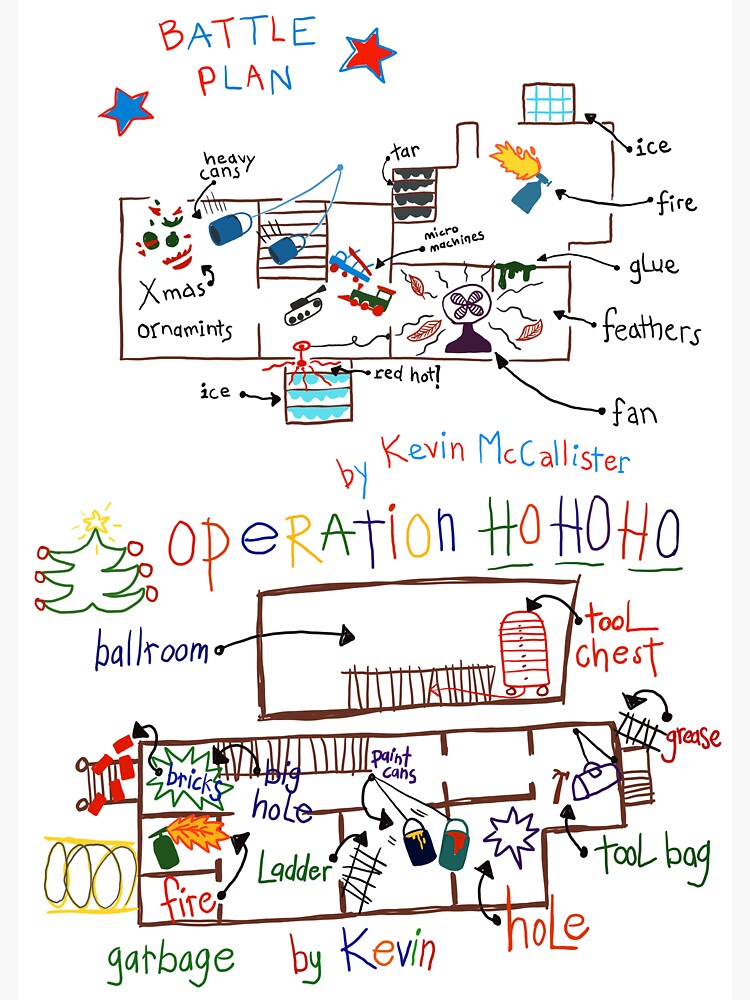 BATTLE
PLAN
heavy
cans
tar
ice
fire
micro
machines
glue
Xmas
ornamints
feathers
red hot!
ice
fan
by Kevin McCallister
OPERATION HO HO HO
ballroom
tool
chest
grease
bricks
big
hole
paint
cans
Ladder
tool bag
fire
hole
garbage
by Kevin